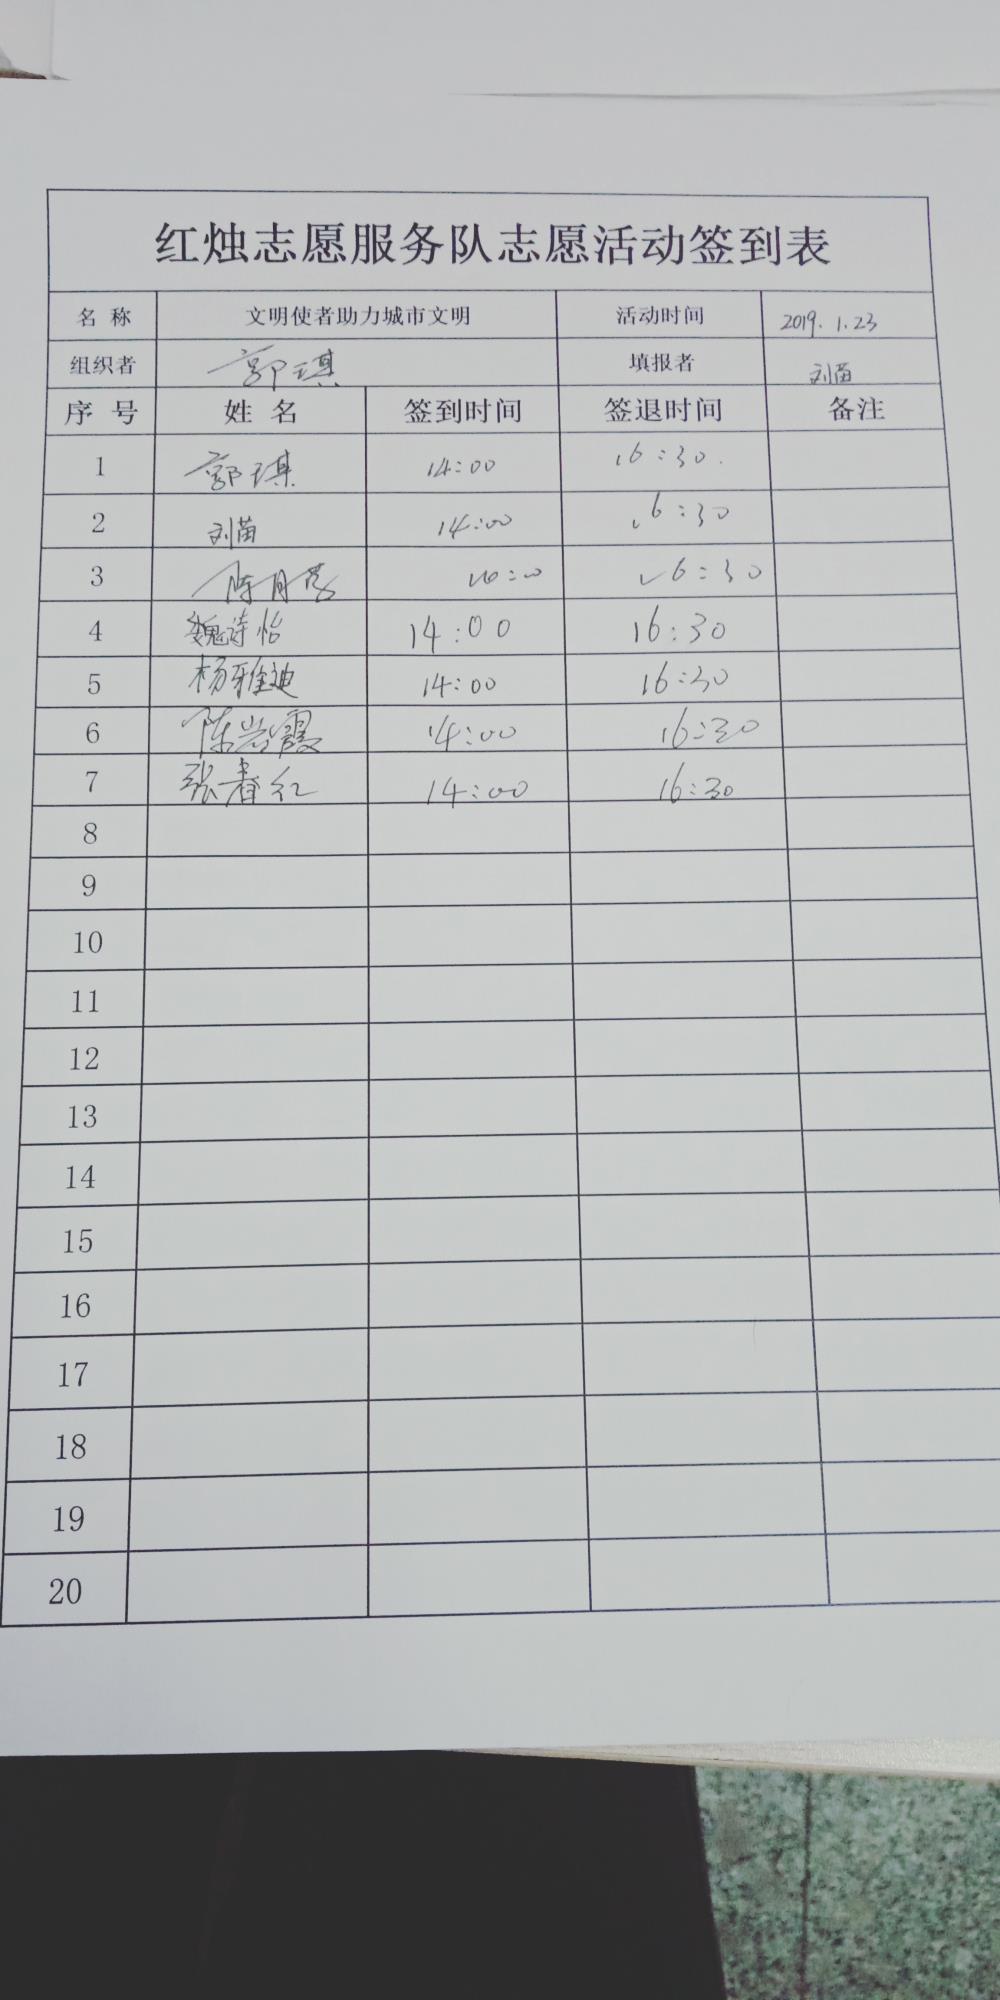 红烛志愿服务队志愿活动签到表
名 称 文明使者助力城市文明 活动时间 2019.1.23
组织者 郭琪 填报者 刘苗
序 号 姓 名 签到时间 签退时间 备注
1 郭琪 14:00 16:30.
2 刘苗 14:00 16:30
3 陈月 16:30
4 魏诗怡 14:00 16:30
5 杨雅迪 14:00 16:30
6 陈岩霞 14:00 16:30
7 张春红 14:00 16:30
8
9
10
11
12
13
14
15
16
17
18
19
20